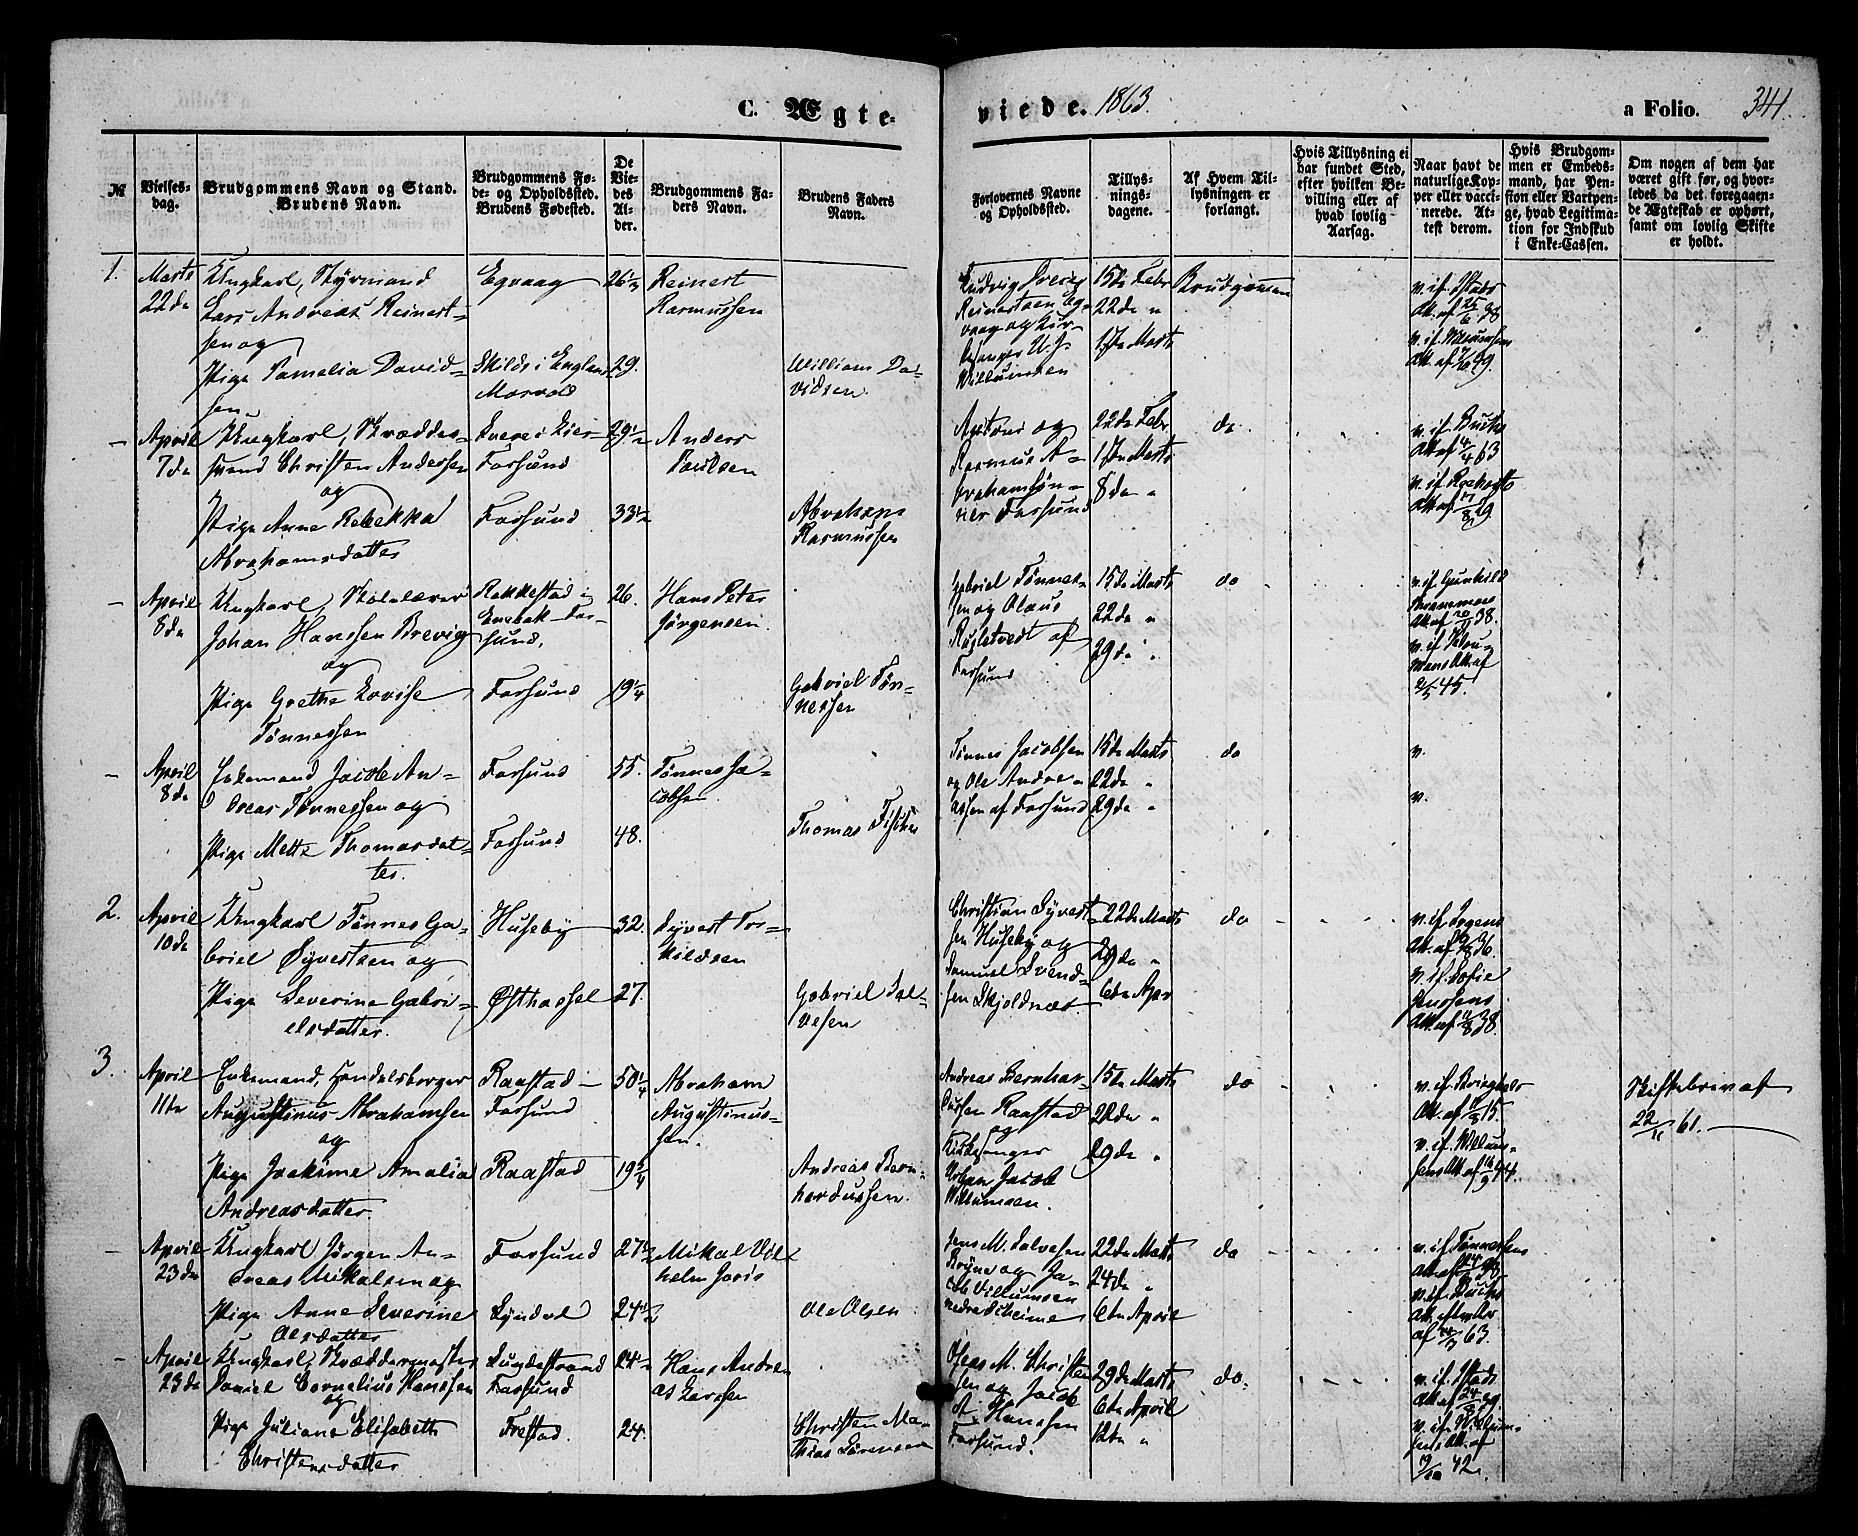 C. Ægte-
viede. 1863.
a Folio. 341.
№
Vielses-
dag.
Brudgommens Navn og Stand.
Brudens Navn.
Brudgommens Fø-
de- og Opholdssted.
Brudens Fødested.
De
Vie-
des
Al-
der.
Brudgommens Fa-
ders Navn.
Brudens Faders
Navn.
Forlovernes Navne
og Opholdssted.
Tillys-
nings-
dagene.
Af Hvem Til-
lysningen er
forlangt.
Hvis Tillysning ei
har fundet Sted,
efter hvilken Be-
villing eller af
hvad lovlig
Aarsag.
Naar havt de
naturlige Kop-
per eller vacci-
nerede. At-
test derom.
Hvis Brudgom-
men er Embeds-
mand, har Pen-
sion eller Vartpen-
ge, hvad Legitima-
tion for Indskud
i Enke-Cassen.
Om nogen af dem har
været gift før, og hvor-
ledes da det foregaaen-
de Ægteskab er ophørt,
samt om lovlig Skifte
er holdt.
1.
Marts
22de
Ungkarl, Styrmand
Lars Andreas Reinert-
sen og
Pige Pamelia David-
sen
Egvaag
26½
Reinert
Rasmussen
29.
William Da-
vidsen
Reinertsen Eg-
vaag og Kir-
kesanger U. J.
Willumsen
15de Febr
22de "
17de Marts
Brudgommen
v. if. Stads
Att. af 25/6 38
v. if. Willumsens
Att. af
– April
7de
Ungkarl, Skrædder-
svend Christen Andersen
og
Pige Anne Rebekka
Abrahamsdatter
Farsund
Farsund
29½
33½
Anders
Poulsen
Abraham
Rasmussen
og
Rasmus A-
brahamsøn-
ner Farsund
22de Febr
17de Marts
8de "
do
v. if. Buchs
Att. af 4/4 63
– April
8de
Ungkarl, Skolelærer
Johan Hanssen Brevig
og
Pige Grethe Lovise
Tønnessen
Rakkestad i
Enebak – Far-
sund.
Farsund
26.
19¼
Hans Peter
Jørgensen.
Gabriel Tøn-
nessen
Gabriel Tønnes-
sen og Olaus
af
Farsund
15de Marts
22de "
29de "
do
v. if. Gunhild
Att. af 38.
45.
– April
8de
Enkemand Jacob An-
dreas Tønnessen og
Pige Mette Thomasdat-
ter.
Farsund
Farsund
55.
48.
Tønnes Ja-
cobsen
Thomas Fischer
Tønnes Jacobsen
og Ole Andre-
assen af Farsund
15de Marts
22de "
29de "
do
v.
v.
2.
April
10de
Ungkarl Tønnes Ga-
briel Syvertsen og
Pige Severine Gabri-
elsdatter.
Huseby
Østhassel
32.
27.
Syvert Tor-
kildsen
Gabriel Sal-
vesen
Christian Syvert-
sen Huseby og
Samuel Svend-
sen Skjoldnæs
22de Marts
29de "
6te Apr
do
Att. af 36.
v. if. Sofie
Jensens
Att. af 38.
3.
April
11te
Enkemand, Handelsborger
Augustinus Abrahamsen
og
Pige Jockime Amalia
Andreasdatter.
Raastad –
Farsund
Raastad
50¼
19¾
Abraham
Augustinus-
sen.
Andreas Bern-
hardussen.
Andreas Bernhar-
dussen Raastad
og
Kirkesanger
Urban Jacob
Willumsen.
15de Marts
22de "
29de "
do
Att. af 15.
v. if. Willum-
sens Att. af 44.
Skiftebrev af
22/11 61.
– April
23de
Ungkarl Jørgen An-
dreas Mikalsen og
Pige Anne Severine
Olsdatter
Farsund
Lyndal
27½
24½
Mikal Vil-
helm Joris
Ole Olsen
Jens M. Salvesen
Bryne og Ja-
cob Villumsen
22de Marts
24de "
6te April
do
v. if. Tønnessens
Att. af
v. if. Buchs
Att.
af 63.
– April
23de
Ungkarl, Skræddermester
Daniel Cornelius Hanssen
og
Pige Juliane Elisabeth
Christensdatter
Lundestrand
Farsund
Frestad.
24½
24.
Hans Andre-
as Larssen
Christen Ma-
thias Sørensen
M. Christen-
sen og Jacob
A. Hanssen
Farsund.
29de Marts
6te April
12te "
do.
v. if. Stads
Att. af 24/8 39.
v. if. Willum-
sens Att. af
42.